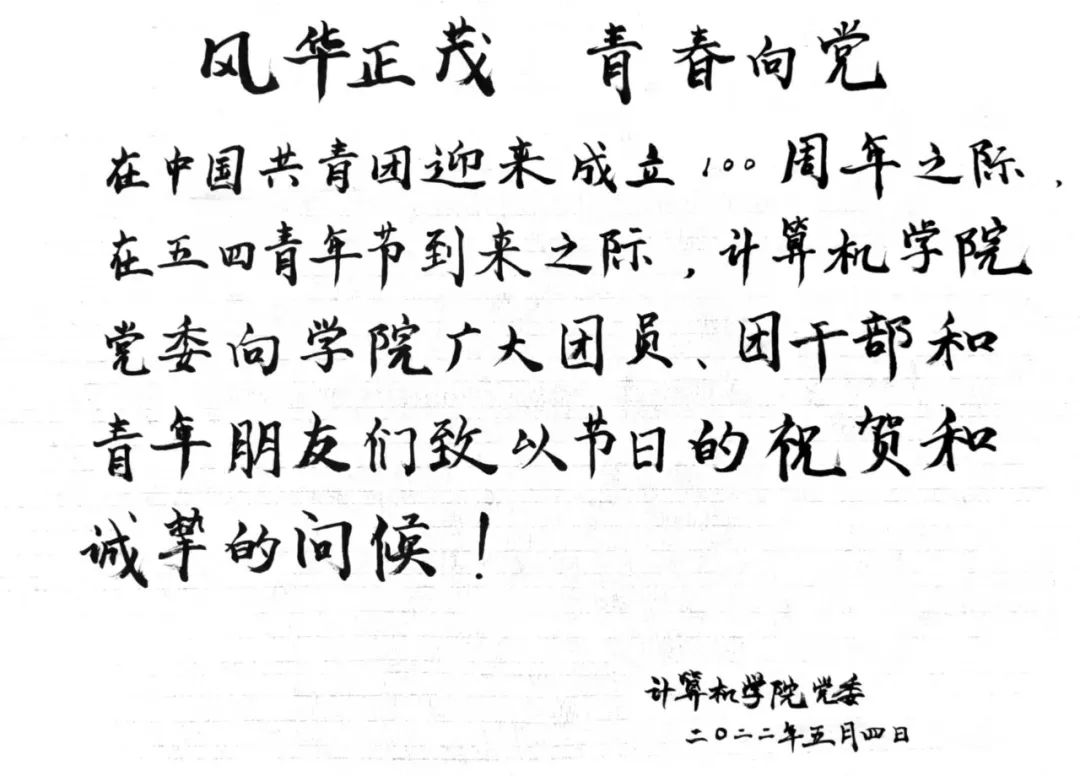 风华正茂 青春向党
在中国共青团迎来成立100周年之际，
在五四青年节到来之际，计算机学院
党委向学院广大团员、团干部和
青年朋友们致以节日的祝贺和
诚挚的问候！
计算机学院党委
二〇二二年五月四日